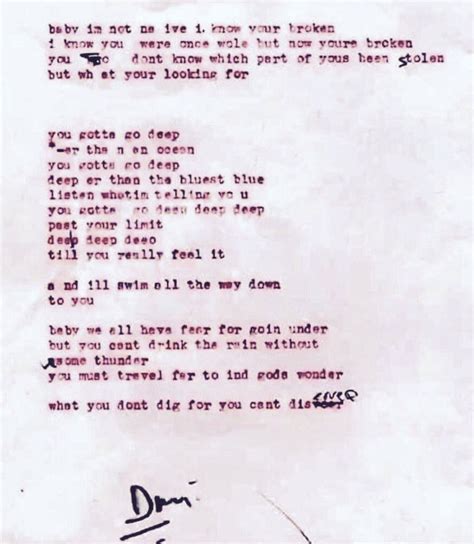 baby im not na ive i know your broken
i know you were once wole but now youre broken
you dont know which part of yous been stolen
but wh at your looking for
you gotta go deep
-er tha n an ocean
you gotta go deep
deep er than the bluest blue
listen whatim telling yo u
you gotta go deep deep deep
past your limit
deep deep deeo
till you really feel it
a nd ill swim all the way down
to you
baby we all have fear for goin under
but you cant drink the rain without
some thunder
you must travel far to ind gods wonder
what you dont dig for you cant discover